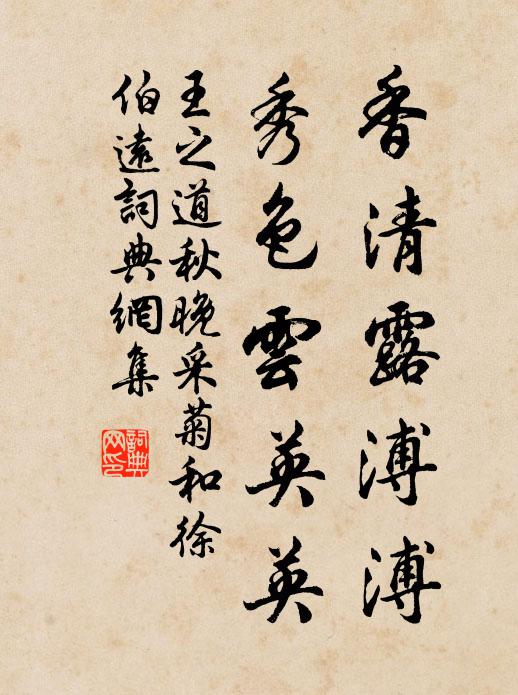 香清露溥溥
秀色雲英英
王之道秋晚采菊和徐
伯遠詞典網集
詞典
网印